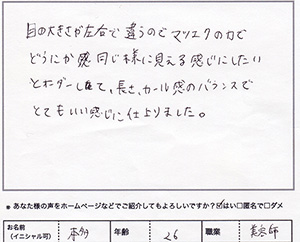 目の大きさが左右で違うのでマツエクの力で
どうにか同じ様に見える感じにしたい
とオーダーして、長さ、カール感のバランスで
とてもいい感じに仕上りました。
*あなた様の声をホームページなどでご紹介してもよろしいですか?☑はい□匿名で□ダメ
お名前 (イニシャル可) 本多 年齢 26 職業 美容師